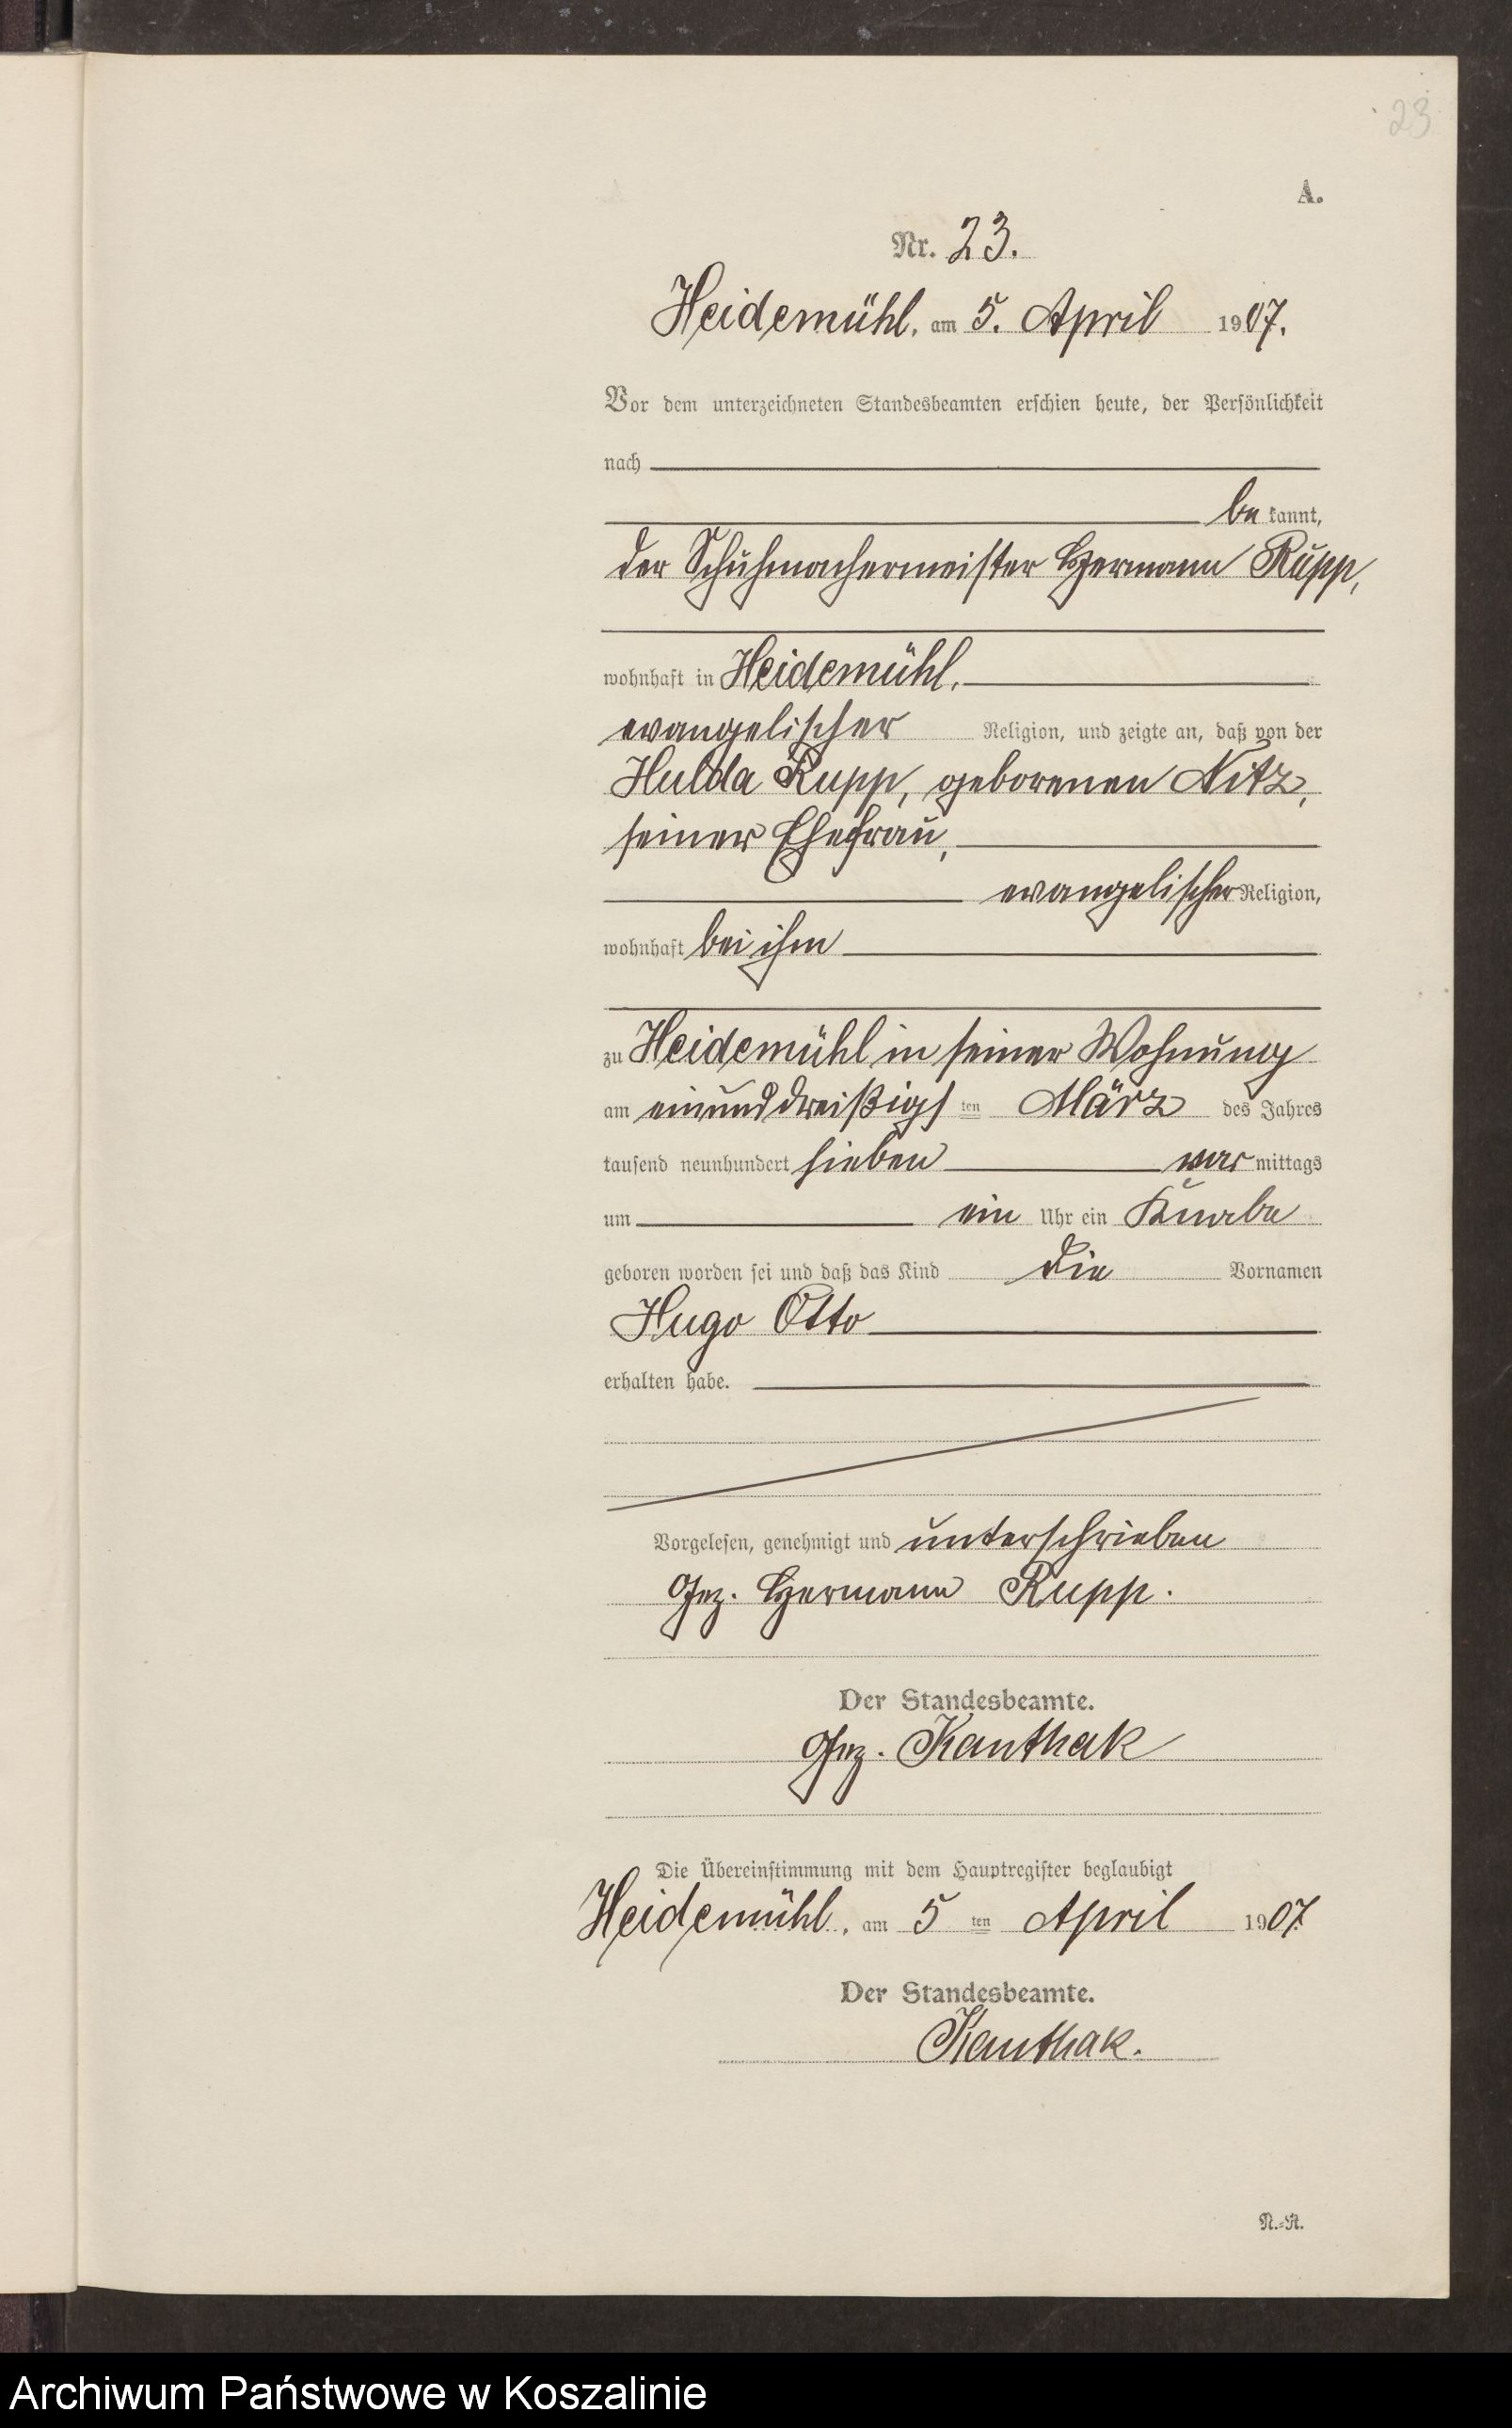 23
A.
Nr. 23.
Heidemühl, am 5. April 1907.
Vor dem unterzeichneten Standesbeamten erschien heute, der Persönlichkeit
nach
be kannt,
der Schuhmachermeister Hermann Rupp,
wohnhaft in Heidemühl,
evangelischer Religion, und zeigte an, daß von der
Hulda Rupp, geborenen Nitz,
seiner Ehefrau,
evangelischer Religion,
wohnhaft bei ihm
zu Heidemühl in seiner Wohnung
am einunddreißigsten März des Jahres
tausend neunhundert sieben vor mittags
um ein Uhr ein Knabe
geboren worden sei und daß das Kind die Vornamen
Hugo Otto
erhalten habe.
Vorgelesen, genehmigt und unterschrieben
Gez. Hermann Rupp.
Der Standesbeamte.
Gez. Kanthak
Die Übereinstimmung mit dem Hauptregister beglaubigt
Heidemühl, am 5 ten April 1907
Der Standesbeamte.
Kanthak.
N.-R.
Archiwum Państwowe w Koszalinie